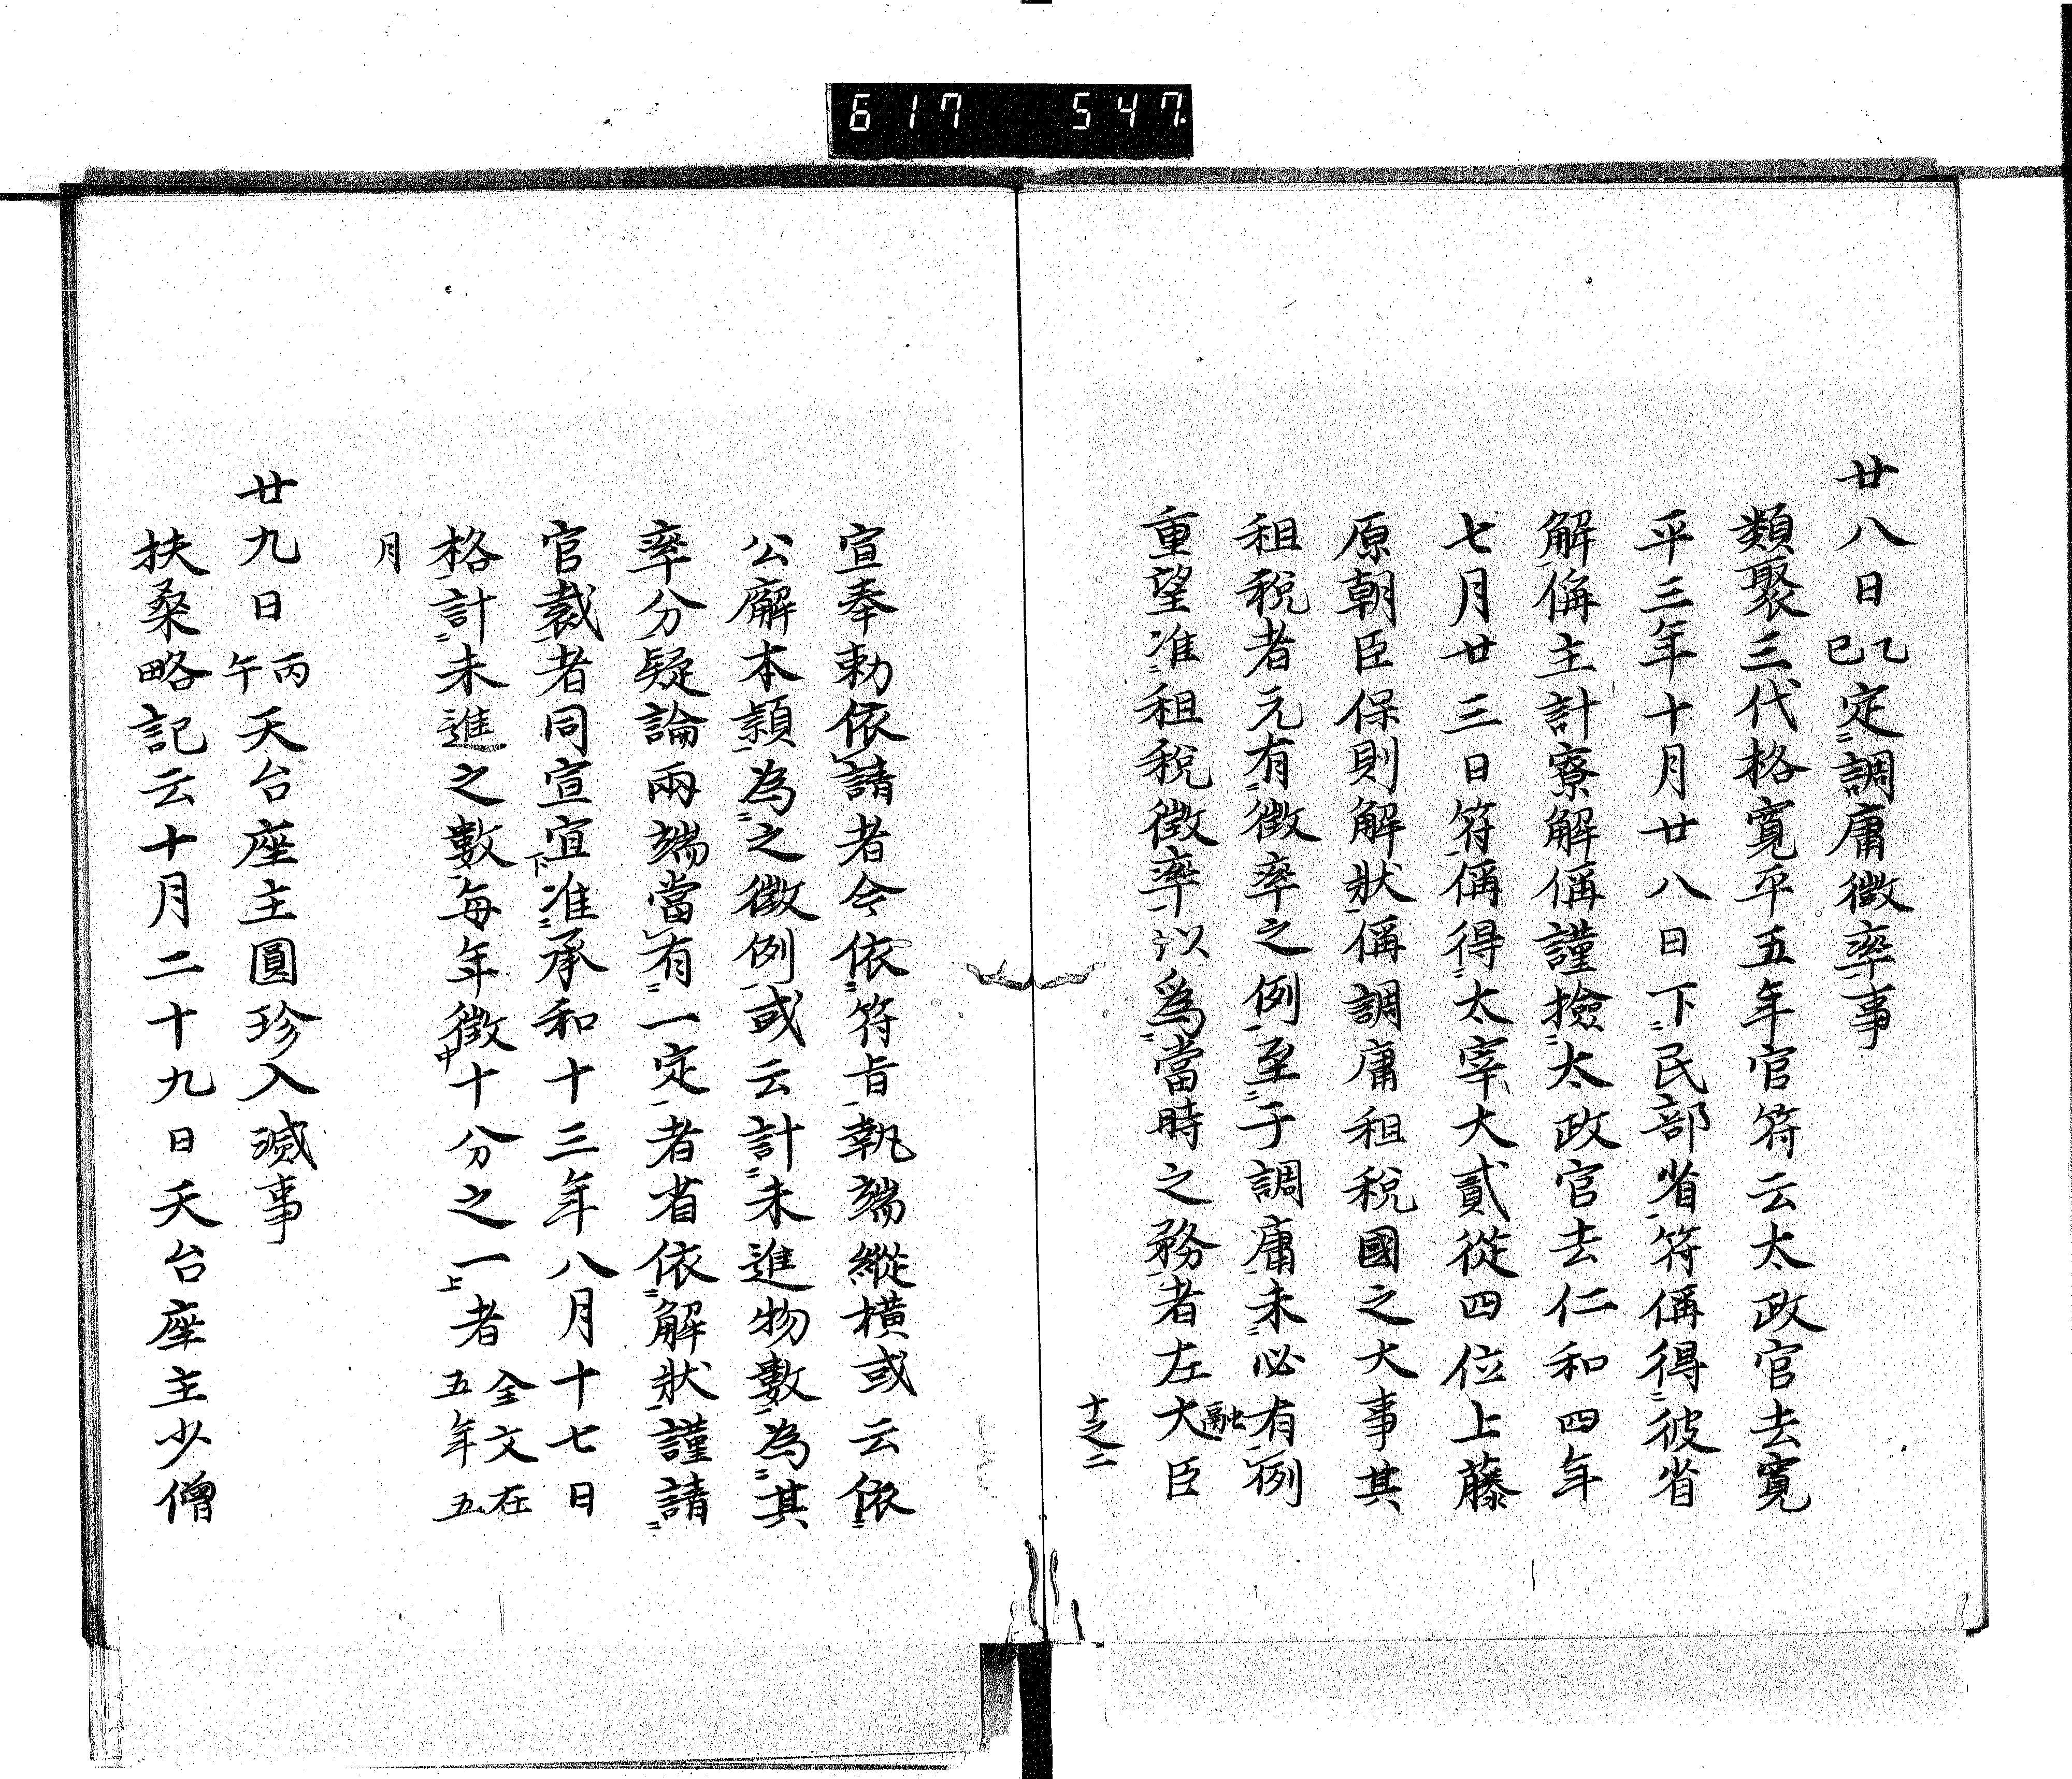 617 547.
廿八日乙巳定調庸徴率事
類聚三代格寛平五年官符云太政官去寛
平三年十月廿八日下民部省符偁得彼省
解偁主計寮解偁謹撿太政官去仁和四年
七月廿三日符偁得太宰大貳從四位上藤
原朝臣保則解狀偁調庸租税國之大事其
租税者元有徴率之例至于調庸未必有例
重望准租税徴率以為當時之務者左大臣融
十之二
宣奉勅依請者令依符旨執端縱横或云依
公廨本頴為之徴例或云計未進物數為其
率分疑論兩端當有一定者省依解狀謹請
官裁者同宣宜准承和十三年八月十七日
格計未進之數每年徴十分之一者全文在五年五
月
廿九日丙午天台座主圓珍入滅事
扶桑略記云十月二十九日天台座主少僧